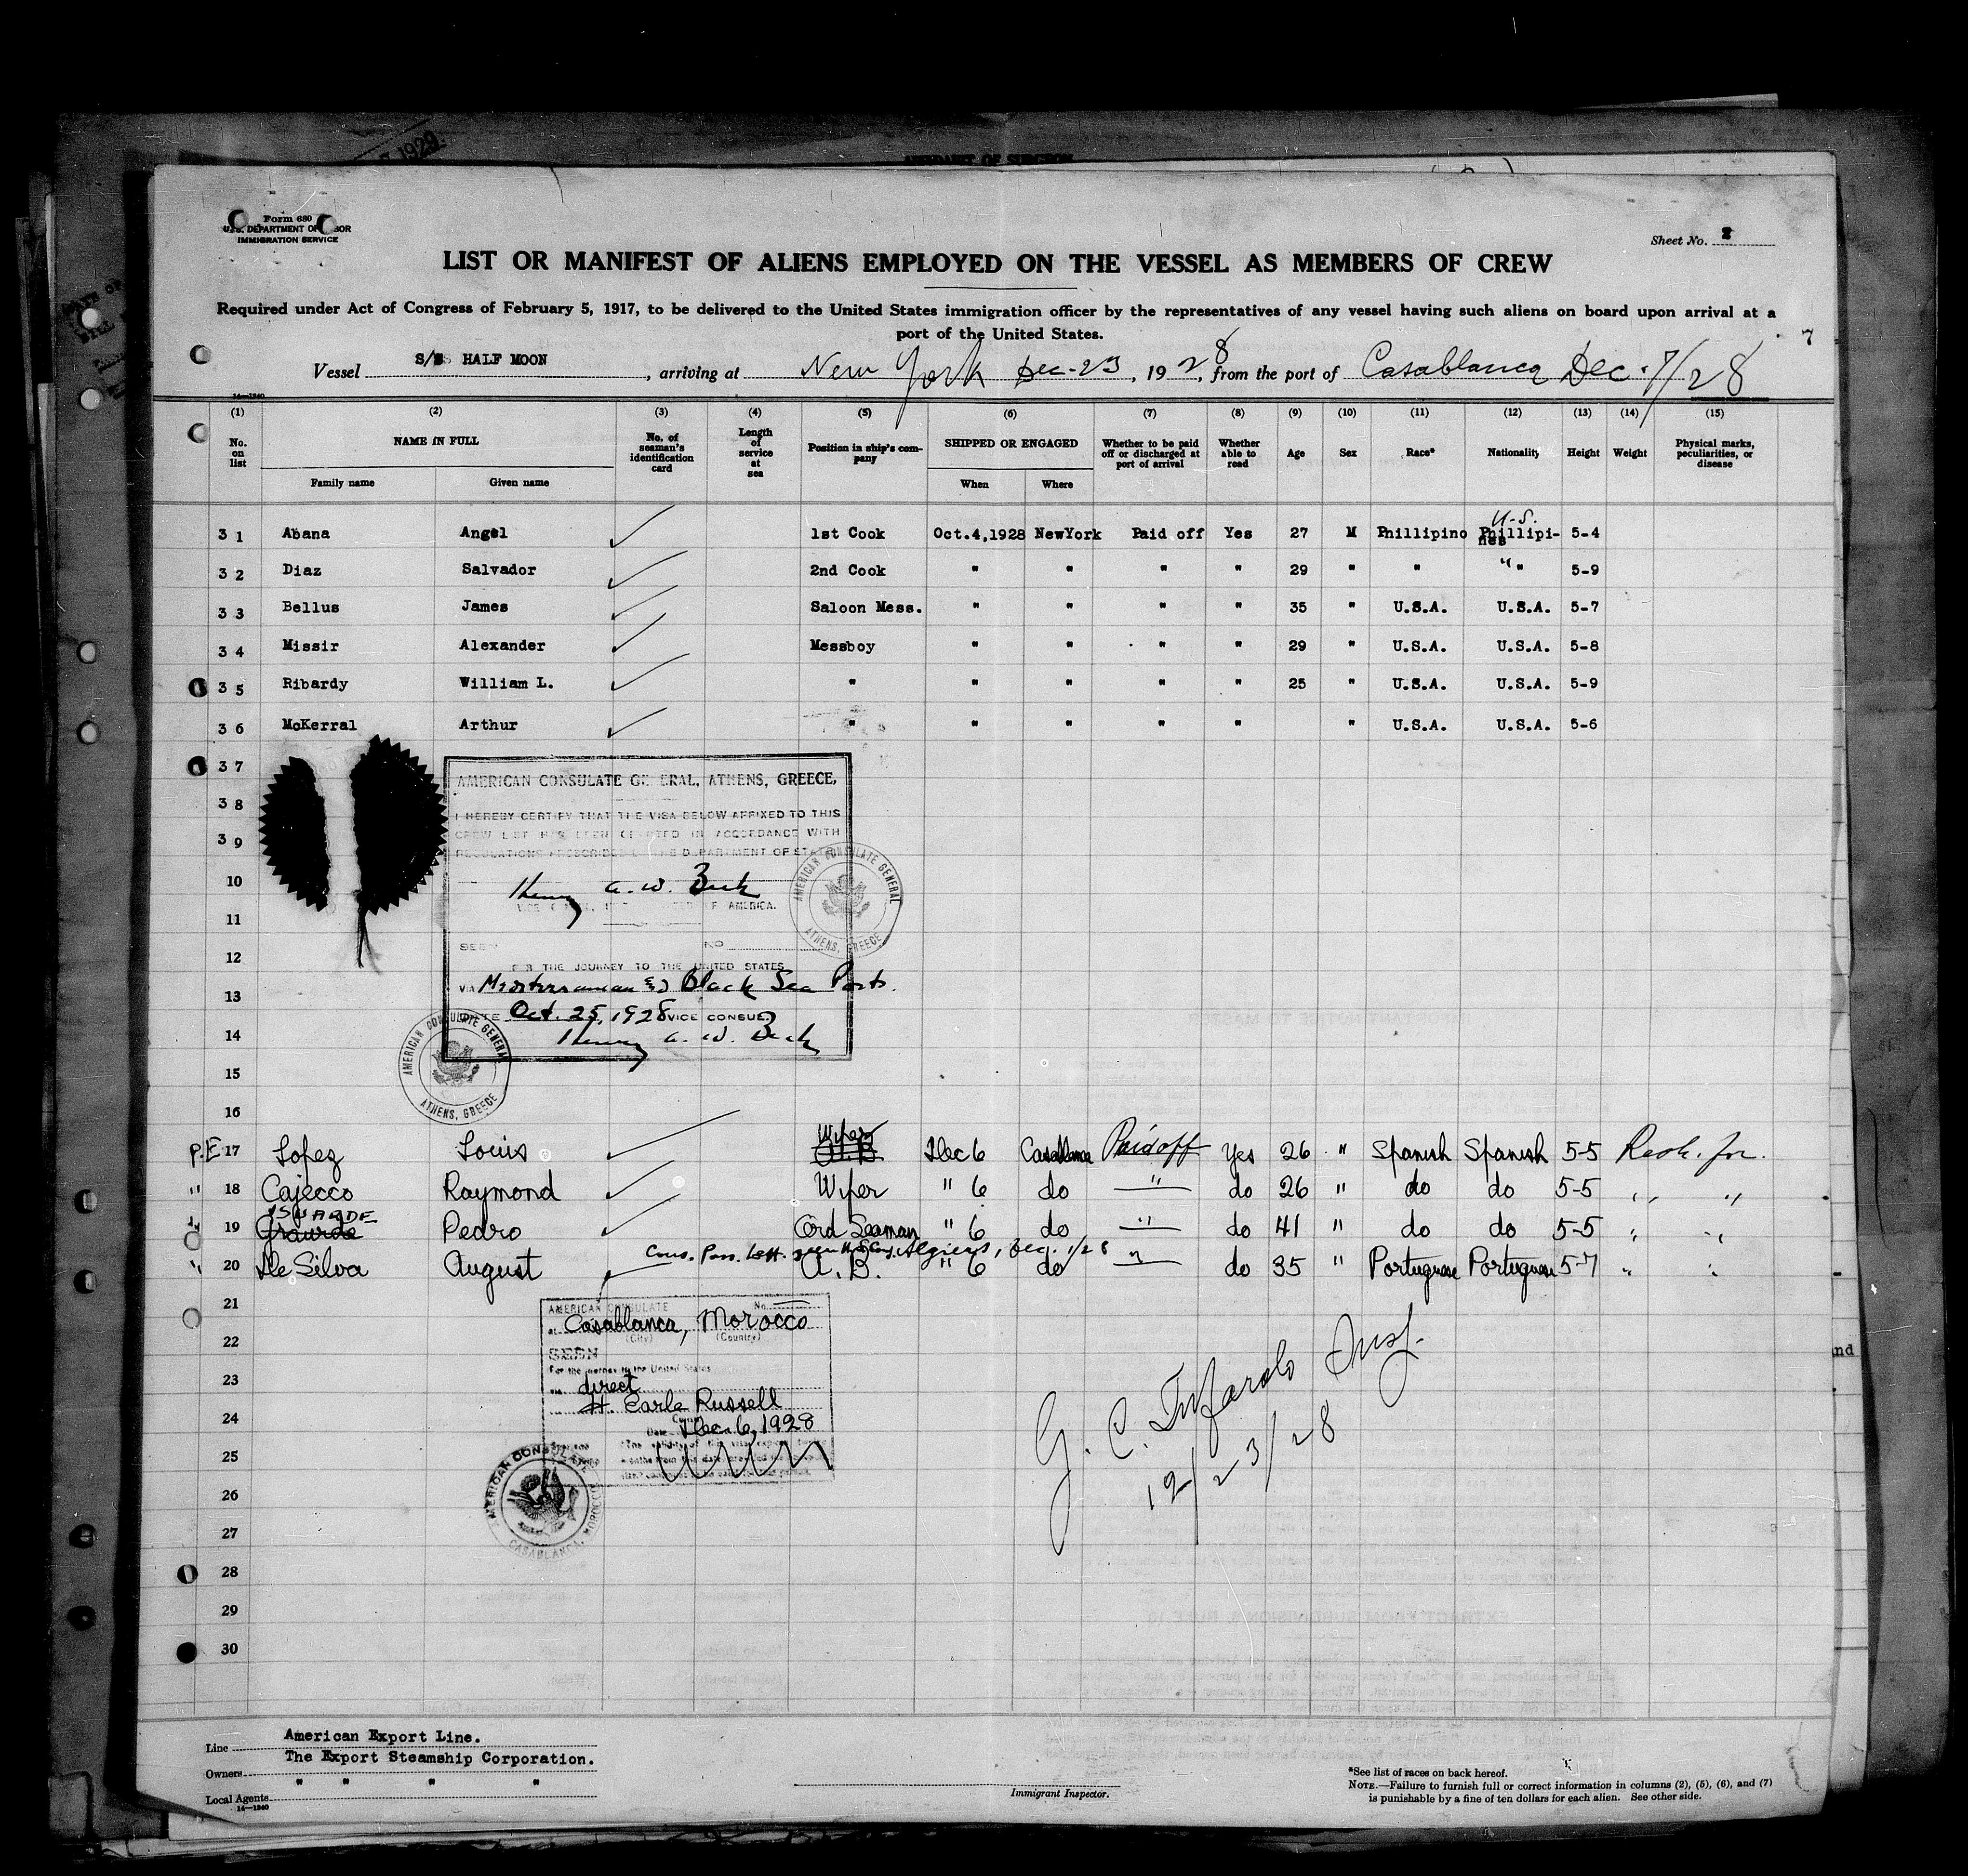 1929
AFFIDAVIT OF SURGEON
Form 680
U.S. DEPARTMENT OF LABOR
IMMIGRATION SERVICE
Sheet No.
LIST OR MANIFEST OF ALIENS EMPLOYED ON THE VESSEL AS MEMBERS OF CREW
Required under Act of Congress of February 5, 1917, to be delivered to the United States immigration officer by the representatives of any vessel having such aliens on board upon arrival at a
port of the United States.
7
Vessel S/S HALF MOON, arriving at New York Dec-23, 1928, from the port of Casablanca Dec. 7/28
14—1240
(1) (2) (3) (4) (5) (6) (7) (8) (9) (10) (11) (12) (13) (14) (15)
No. on list NAME IN FULL Family name Given name No. of seaman's identification card Length of service at sea Position in ship's company SHIPPED OR ENGAGED When Where Whether to be paid off or discharged at port of arrival Whether able to read Age Sex Race* Nationality Height Weight Physical marks, peculiarities, or disease
31 Abana Angel 1st Cook Oct.4,1928 NewYork Paid off Yes 27 M Phillipino U.S. Phillipines 5-4
32 Diaz Salvador 2nd Cook " " " " 29 " " " " 5-9
33 Bellus James Saloon Mess. " " " " 35 " U.S.A. U.S.A. 5-7
34 Missir Alexander Messboy " " " " 29 " U.S.A. U.S.A. 5-8
35 Ribardy William L. " " " " " 25 " U.S.A. U.S.A. 5-9
36 McKerral Arthur " " " " " " U.S.A. U.S.A. 5-6
37
38
39
10
11
12
13
14
15
16
AMERICAN CONSULATE GENERAL, ATHENS, GREECE,
I HEREBY CERTIFY THAT THE VISA BELOW AFFIXED TO THIS
CREW LIST HAS BEEN GRANTED IN ACCORDANCE WITH
REGULATIONS PRESCRIBED DEPARTMENT OF STATE
Henry A. W. Beck
OF AMERICA.
AMERICAN CONSULATE GENERAL
ATHENS, GREECE
SEEN NO
FOR THE JOURNEY TO THE UNITED STATES
VIA Mediterranean & Black Sea Ports.
DATE Oct. 25, 1928 VICE CONSUL
Henry A. W. Beck
AMERICAN CONSULATE GENERAL
ATHENS, GREECE
P.E 17 Lopez Louis Wiper A.B. Dec 6 Casablanca Paid off Yes 26 " Spanish Spanish 5-5
" 18 Cajecco Raymond Wiper " 6 do " do 26 " do do 5-5 " "
19 Pedro Ord Seaman " 6 do " do 41 " do do 5-5 " "
Algiers, Dec. 1/28
" 20 De Silva August A.B. " 6 do " do 35 " Portuguese Portuguese 5-7 " "
21
22
23
24
25
26
27
28
29
30
AMERICAN CONSULATE No.
at Casablanca, Morocco
(City) (Country)
SEEN
For the journey to the United States
via direct
H. Earle Russell
Consul
Date Dec. 6, 1928
AMERICAN CONSULATE
CASABLANCA, MOROCCO
G. C. Insp.
12/23/28
nd
Line American Export Line.
Owners The Export Steamship Corporation.
Local Agents " " " "
14—1240
Immigrant Inspector.
*See list of races on back hereof.
NOTE.—Failure to furnish full or correct information in columns (2), (5), (6), and (7)
is punishable by a fine of ten dollars for each alien. See other side.